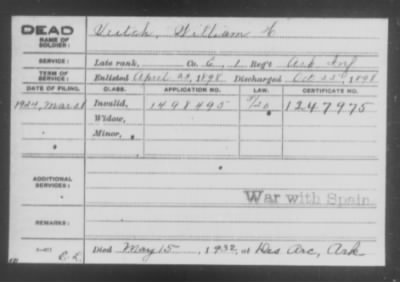 DEAD
NAME OF SOLDIER: Veitch, William H
SERVICE: Late rank, Co. C, 1 Reg't Ark Inf
TERM OF SERVICE: Enlisted April 29, 1898, Discharged Oct 25, 1898
DATE OF FILING. CLASS. APPLICATION NO. LAW. CERTIFICATE NO.
1924, Invalid, 1498495 1247975
Widow,
Minor,
ADDITIONAL SERVICES:
War with Spain.
REMARKS:
Died May 15, 1932, at Des Arc, Ark